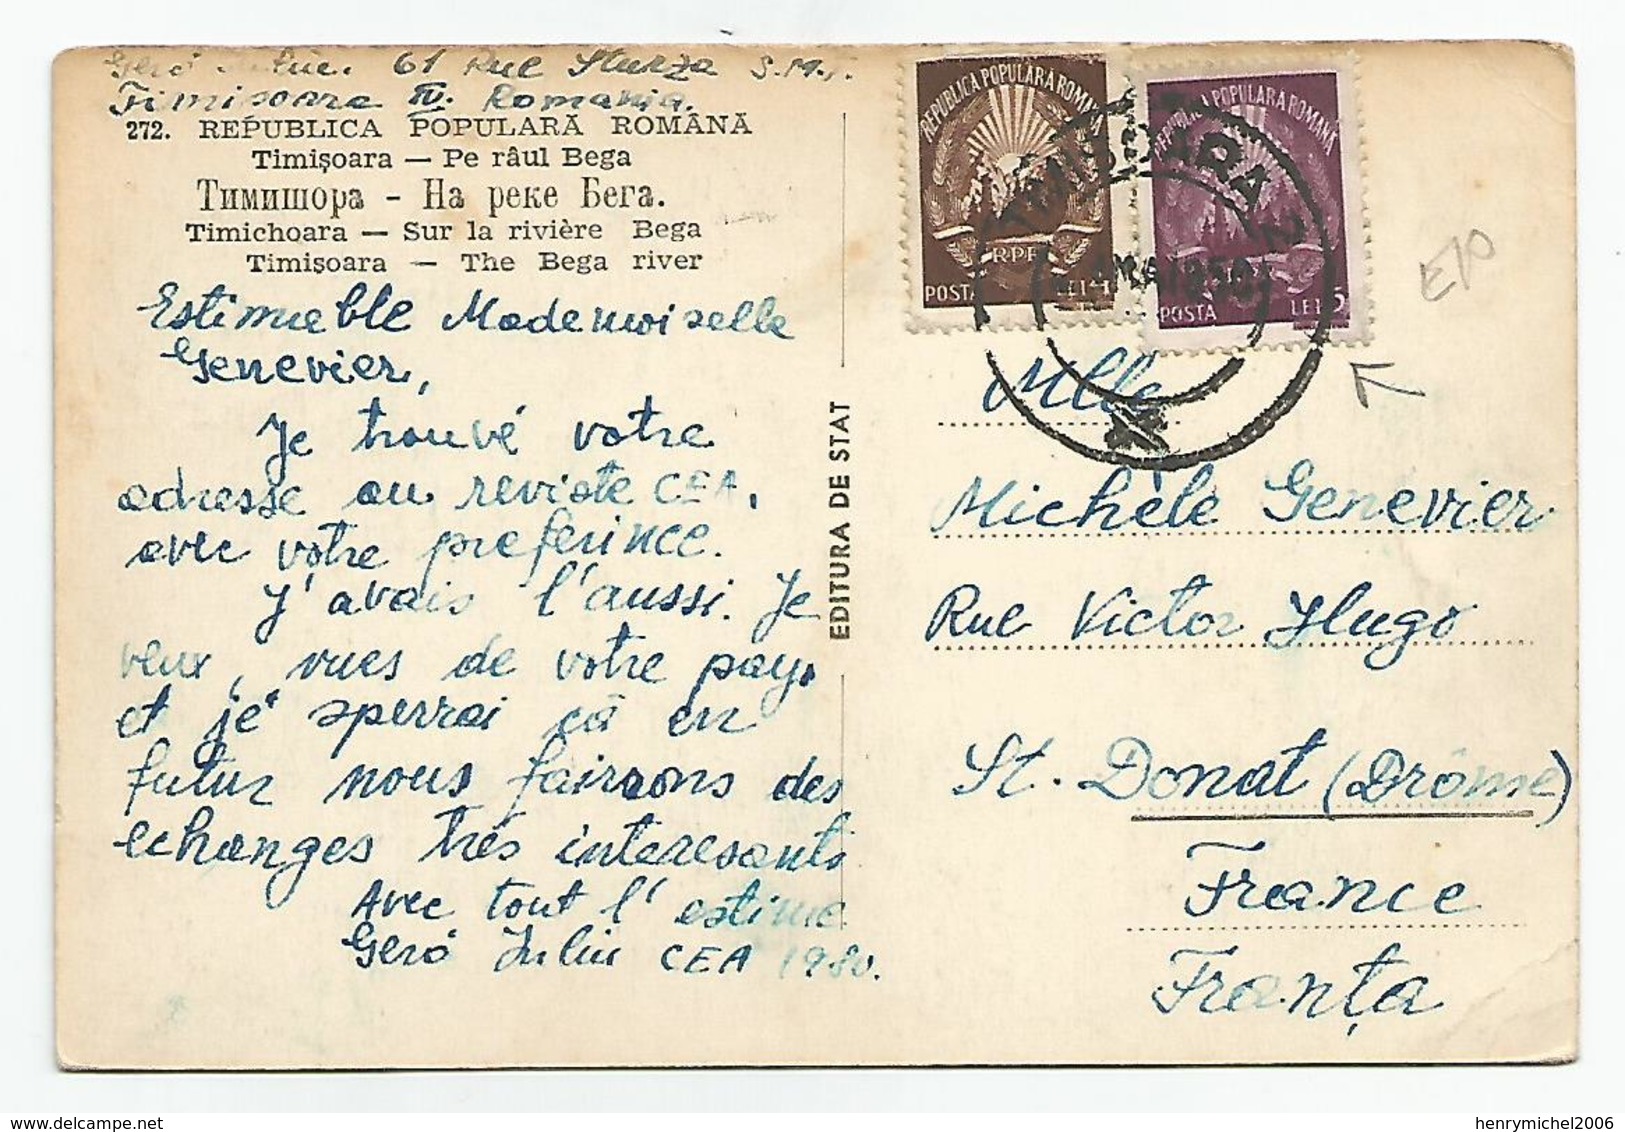 Gerö Iuliu. 61 Rue Sturza S.M.T.
Timisoara IV. Romania.
272. REPUBLICA POPULARĂ ROMÂNĂ
Timișoara — Pe râul Bega
Тимишора - На реке Бега.
Timichoara — Sur la rivière Bega
Timișoara — The Bega river
Estimeble Mademoiselle
Genevier,
Je trouvé votre
adresse au reviste CEA,
avec votre preferince.
J'avais l'aussi. Je
veux, vues de votre pays
et je sperrai câ en
futur nous fairons des
echanges trés interesants
Avec tout l'estime
Gerö Iuliu CEA 1980.
EDITURA DE STAT
REPUBLICA POPULARA ROMANA
RPR
POSTA LEI 4
POPULARA ROMANA
POSTA LEI 5
TIMISOARA 2
E10
Mlle
Michèle Genevier
Rue Victor Hugo
St. Donat (Drôme)
France
Franța
henrymichel2006